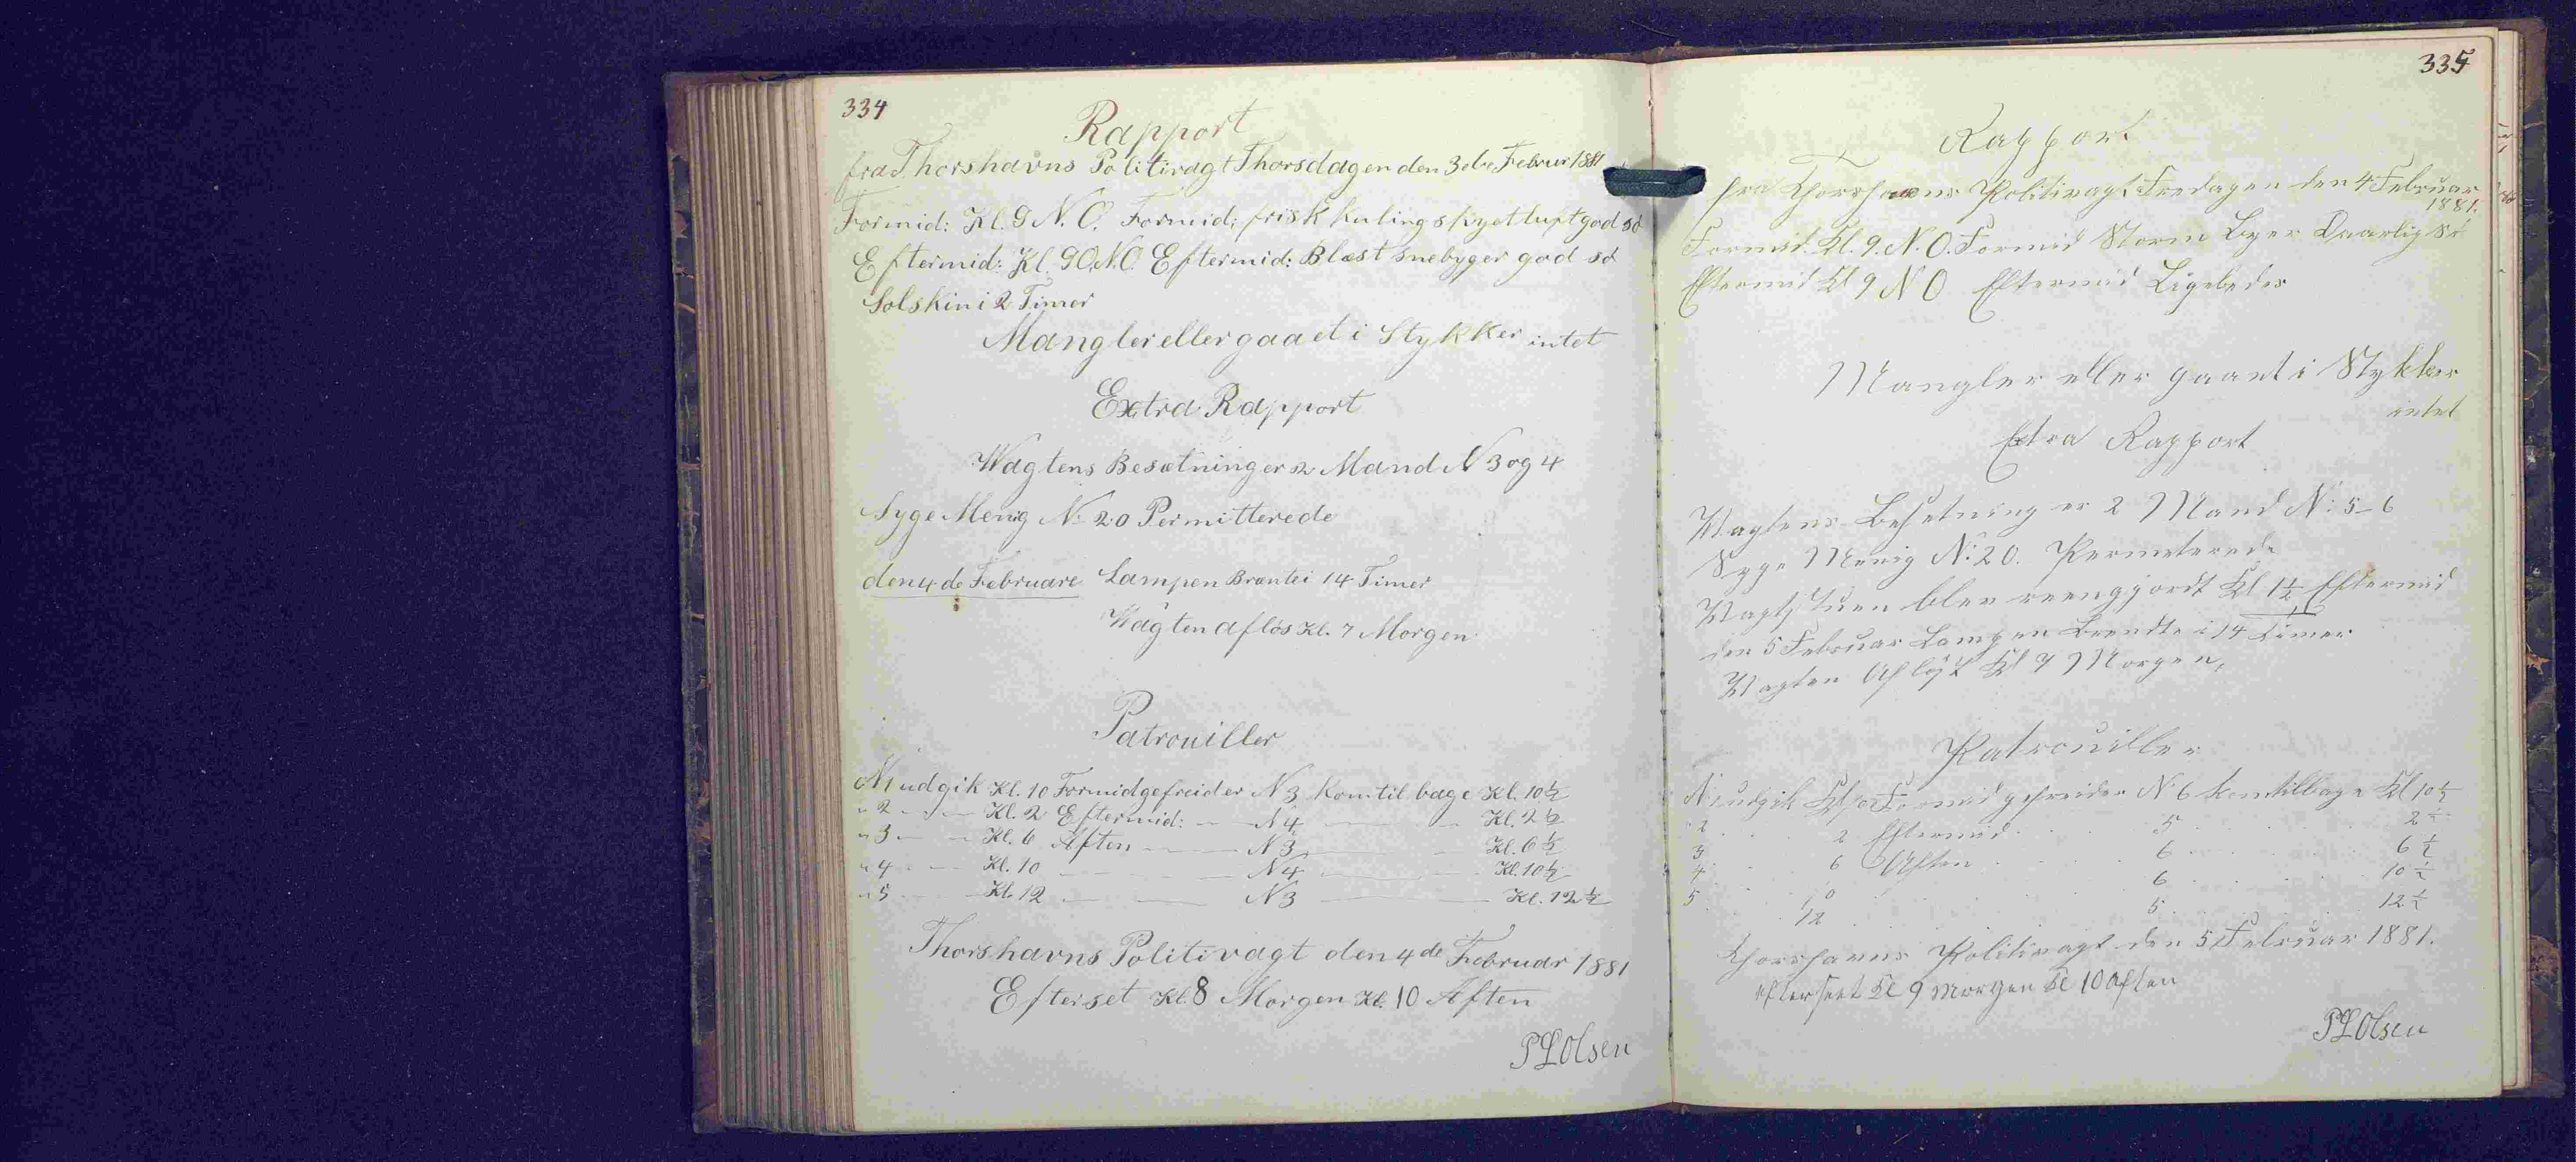 334
Rapport
fra Thorshavns Politivagt Thorsdagen den 3die Februr 1881
Formid: Kl. 9 N. O. Formid: frisk kuling skyet luft god sö
Eftermid: Kl. 9 O.N.O. Eftermid: Blæst snebyger god sö
Solskin i 2 Timer
Mangler eller gaaet i Stykker intet
Extra Rapport
Wagtens Besætning er 2 Mand N 3 og 4
Syge Menig N: 20 Permitterede
den 4 de Februare Lampen Brænte i 14 Timer
Wagten aflös Kl. 7 Morgen
Patrouiller
N 1 udgik Kl. 10 Formid gefreider N 3 kom til bage Kl. 10 ½
" 2 — " — Kl. 2 Eftermid: — — N 4 — — Kl. 2 ½
" 3 — — Kl. 6 Aften — — N 3 — — Kl. 6 ½
" 4 — — Kl. 10 — — N 4 — — Kl. 10 ½
" 5 — — Kl. 12 — — N 3 — — Kl. 12 ½
Thorshavns Politivagt den 4 de Februar 1881
Efterset Kl. 8 Morgen Kl. 10 Aften
PLOlsen
335
Rapport
fra Thorshavns Politivagt Fredagen den 4 Februar
1881.
Formid. Kl. 9. N. O. Formid Storm Byer Daarlig Sö
Eftermid Kl 9 N O Eftermid Ligeledes
Mangler eller gaaet i Stykker
intet
Extra Rapport
Vagtens Besetning er 2 Mand N: 5-6
Syge Menig N: 20. Permeterede
Vagtstuen blev reengjordt Kl 1 ½ Eftermid
den 5 Februar Lampen Brendte i 14 Timer
Vagten Aflöst Kl 7 Morgen,
Patrouiller
N: 1 udgik Kl 10 Formid gefreider N 6 kom tilbage Kl 10 ½
2 . . 2 Eftermid . . 5 . . 2 ½
3 . . 6 Aften . . 6 . . 6 ½
4 . . 10 . . 6 . . 10 ½
5 . . 12 . . 5 . . 12 ½
Thorshavns Politivagt den 5 Februar 1881.
efterseet Kl 9 Morgen Kl 10 Aften
PLOlsen